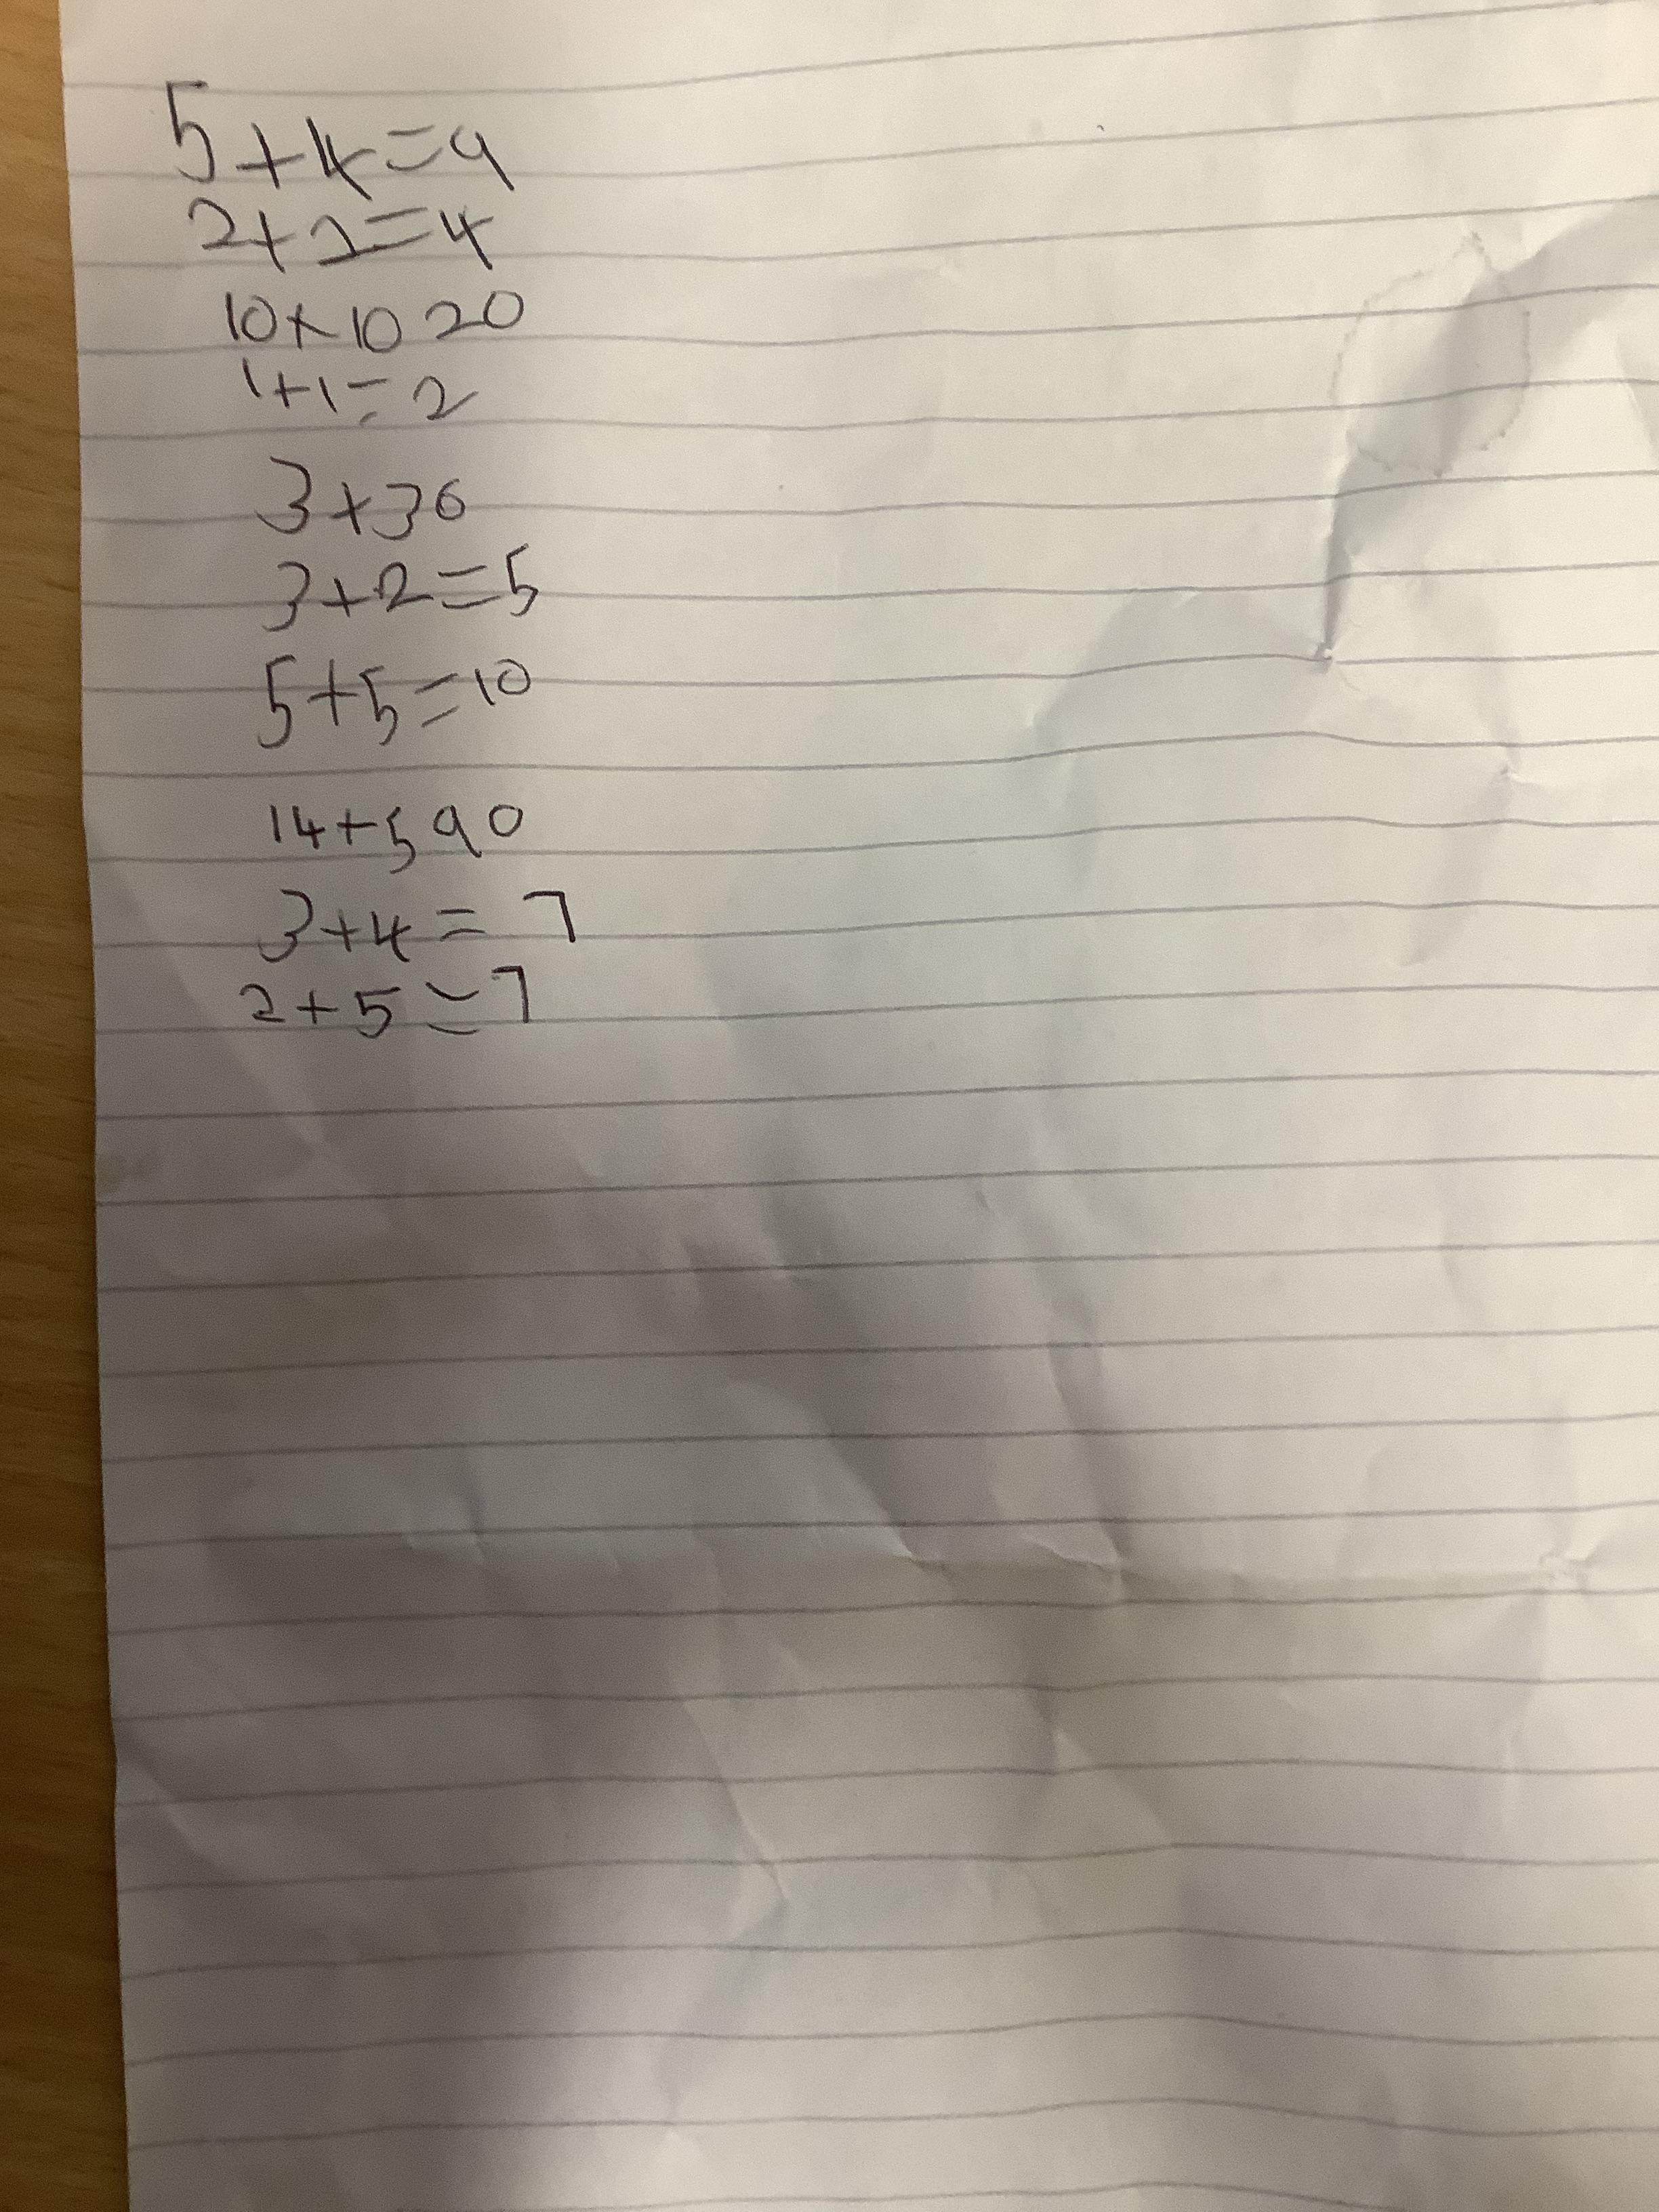 5+4=9
2+2=4
10+10 20
1+1=2
3+36
3+2=5
5+5=10
14+5 90
3+4=7
2+5=7